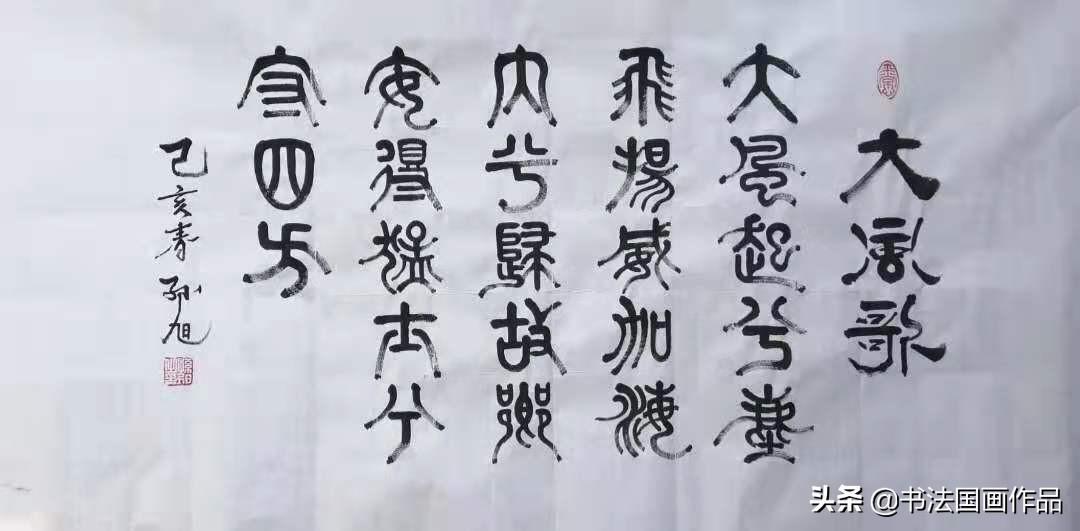 大風歌
大風起兮
飛揚威加海
内兮歸故鄉
安得猛士兮
守四方
己亥春 孙旭
头条 @书法国画作品